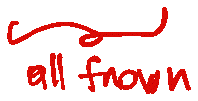 all frown